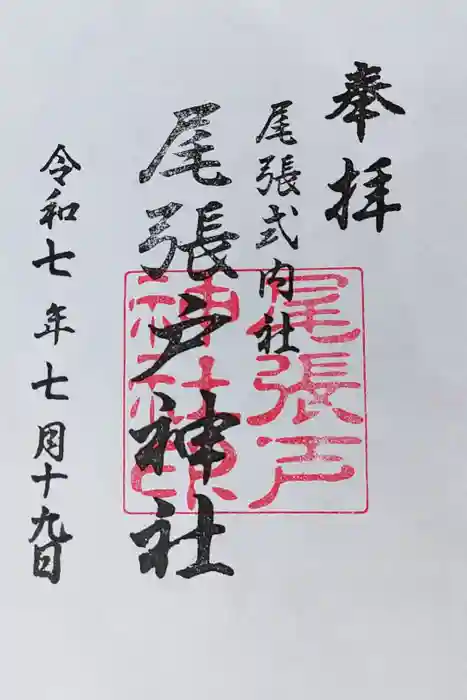 奉拝
尾張式内社
尾張戸神社
令和七年七月十九日
尾張戸
神社印